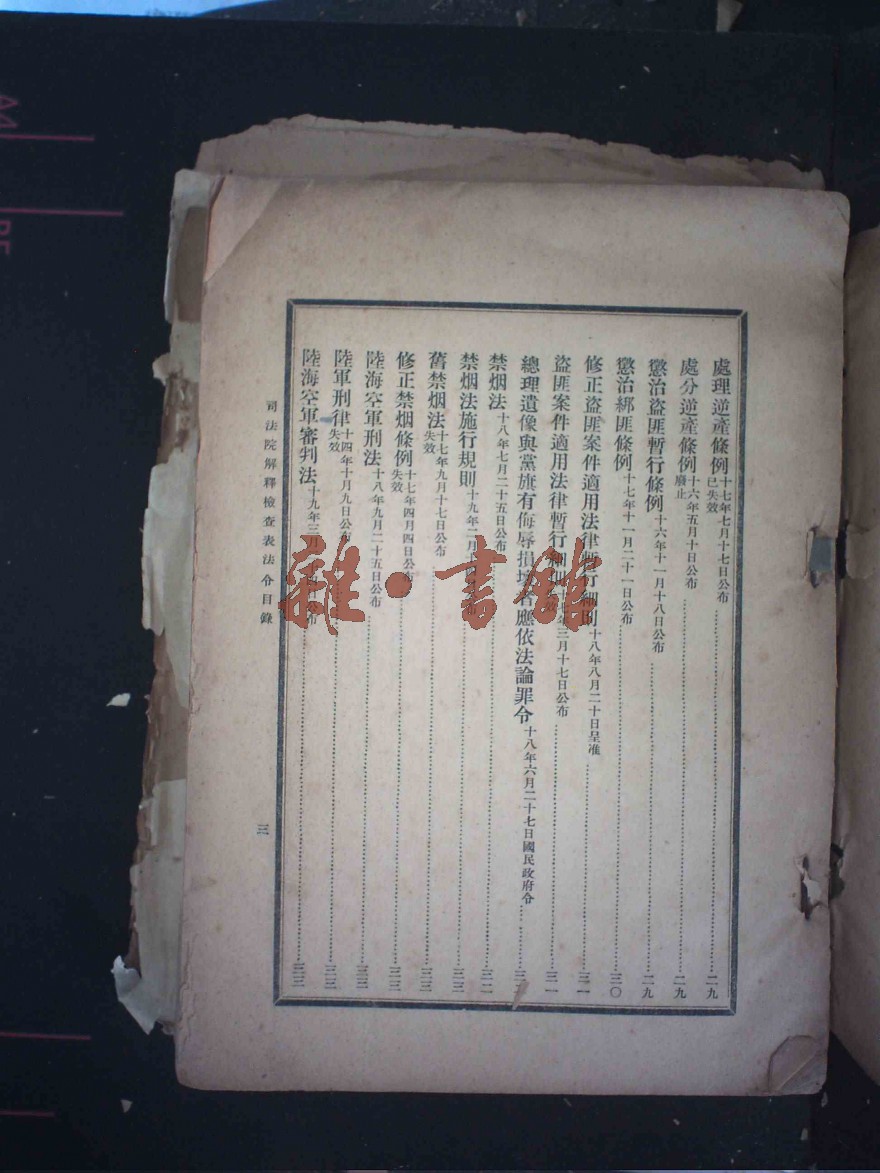 處理逆產條例十七年七月十七日公布已失效……二九
處分逆產條例十六年五月十日公布廢止……二九
懲治盜匪暫行條例十六年十一月十八日公布……二九
懲治綁匪條例十七年十一月二十一日公布……三〇
修正盜匪案件適用法律暫行細則十八年八月二十日呈准……三一
盜匪案件適用法律暫行細則年三月十七日公布……三一
總理遺像與黨旗有侮辱損壞者應依法論罪令十八年六月二十七日國民政府令……三
禁烟法十八年七月二十五日公布……三二
禁烟法施行規則十九年二月……三三
舊禁烟法十七年九月十七日公布失效……三三
修正禁烟條例十七年四月四日公布失效……三三
陸海空軍刑法十八年九月二十五日公布……三三
陸軍刑律十四年十月九日公布失效……三三
陸海空軍審判法十九年三月公布……三三
司法院解釋檢查表法令目錄
三
雜·書館